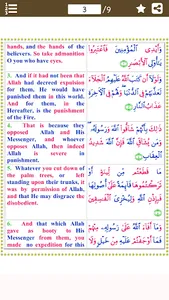 3
/9
hands, and the hands of the
believers. So take admonition
O you who have eyes.
وَأَيْدِى الْمُؤْمِنِينَ فَاعْتَبِرُوا
يَٰٓأُو۟لِى الْأَبْصَٰرِ
3. And if it had not been that
Allah had decreed expulsion
for them, He would have
punished them in this world.
And for them, in the
Hereafter, is the punishment
of the Fire.
وَلَوْلَآ أَن كَتَبَ اللَّهُ عَلَيْهِمُ الْجَلَآءَ
لَعَذَّبَهُمْ فِى الدُّنْيَا وَلَهُمْ فِى الْءَاخِرَةِ
عَذَابُ النَّارِ
4. That is because they
opposed Allah and His
Messenger, and whoever
opposes Allah, then indeed
Allah is severe in
punishment.
ذَٰلِكَ بِأَنَّهُمْ شَآقُّوا اللَّهَ وَرَسُولَهُۥ
وَمَن يُشَآقِّ اللَّهَ فَإِنَّ اللَّهَ شَدِيدُ
الْعِقَابِ
5. Whatever you cut down of
the palm trees, or left
standing upon their trunks, it
was by permission of Allah,
and that He may disgrace the
disobedient.
مَا قَطَعْتُم مِّن لِّينَةٍ أَوْ
تَرَكْتُمُوهَا قَآئِمَةً عَلَىٰٓ أُصُولِهَا
فَبِإِذْنِ اللَّهِ وَلِيُخْزِىَ الْفَٰسِقِينَ
6. And that which Allah
gave as booty to His
Messenger from them, you
made no expedition for this
وَمَآ أَفَآءَ اللَّهُ عَلَىٰ رَسُولِهِۦ مِنْهُمْ
فَمَآ أَوْجَفْتُمْ عَلَيْهِ مِنْ خَيْلٍ وَلَا